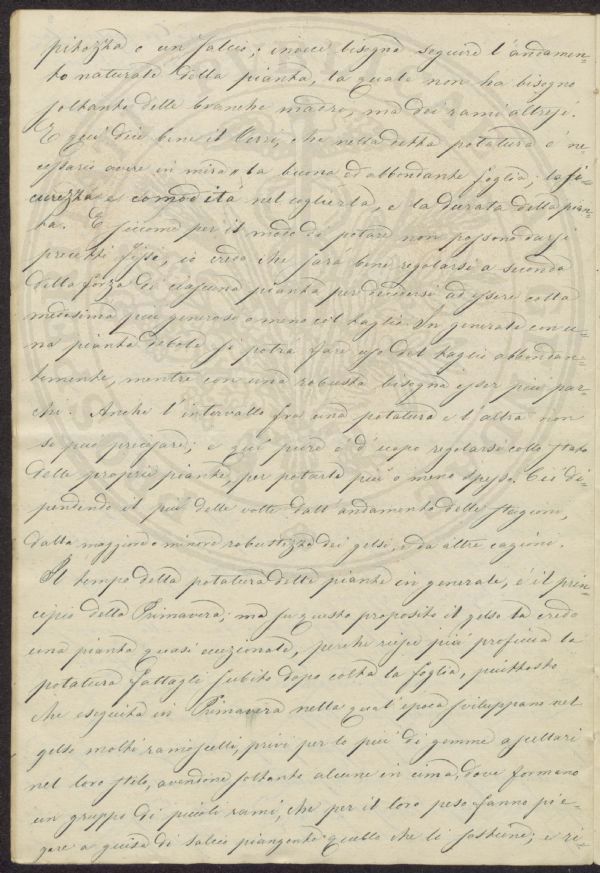 pitozza o un salcio; invece bisogna seguire l'andamen=
to naturale della pianta, la quale non ha bisogno
soltanto delle branche madri, ma dei rami altresì.
E quì dice bene il Verri, che nella detta potatura è ne
cessario avere in mira la buona ed abbondante foglia; la si=
curezza e comodità nel coglierla, e la durata della pian=
ta. E siccome per il modo di potare non possono darsi
precetti fissi, io credo che sarà bene regolarsi a seconda
della forza di ciascuna pianta per decidersi ad essere colla
medesima più generoso o meno col taglio. In generale con u=
na pianta debole si potrà fare uso del taglio abbondan=
temente, mentre con una robusta bisogna esser più par=
chi. Anche l'intervallo fra una potatura e l'altra non
si può precisare; e quì pure è d'uopo regolarsi collo stato
delle proprie piante, per potarle più o meno spesso. Ciò di=
pendendo il più delle volte dall'andamento delle stagioni,
dalla maggiore o minore robustezza dei gelsi, e da altre cagioni.
Il tempo della potatura delle piante in generale, è il prin=
cipio della Primavera; ma su questo proposito il gelso la credo
una pianta quasi eccezionale, perchè riesce più proficua la
potatura fattagli subito dopo colta la foglia, piuttosto
che eseguita in Primavera nella qual'epoca sviluppano nel
gelso molti ramoscelli, privi per lo più di gemme ascellari
nel loro stelo, avendone soltanto alcune in cima, dove formano
un gruppo di piccoli rami, che per il loro peso fanno pie=
gare a guisa di salcio piangente quello che li sostiene; e ri=